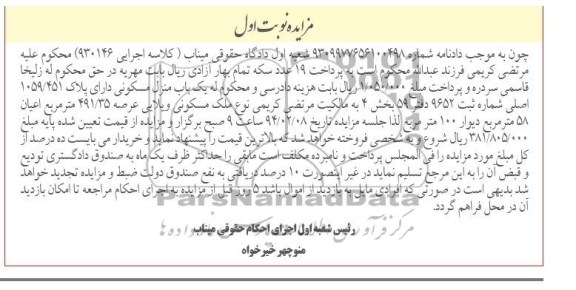 مزایده نوبت اول
چون به موجب دادنامه شماره ۹۳۰۹۹۷۷۶۵۶۱۰۰۴۹۸ شعبه اول دادگاه حقوقی میناب ( کلاسه اجرایی ۹۳۰۱۴۶) محکوم علیه
مرتضی کریمی فرزند عبدالله محکوم است به پرداخت ۱۹ عدد سکه تمام بهار آزادی ریال بابت مهریه در حق محکوم له زلیخا
قاسمی سرده و پرداخت مبلغ ۱/۰۵۰/۰۰۰ ریال بابت هزینه دادرسی و محکوم له یک باب منزل مسکونی دارای پلاک ۱۰۵۹/۴۵۱
اصلی شماره ثبت ۹۶۵۲ دفتر ۵۹ بخش ۴ به مالکیت مرتضی کریمی نوع ملک مسکونی ویلایی عرصه ۴۹۱/۳۵ مترمربع اعیان
۵۸ مترمربع دیوار ۱۰۰ متر مربع لذا جلسه مزایده تاریخ ۹۴/۰۲/۰۸ ساعت ۹ صبح برگزار و مزایده از قیمت تعیین شده پایه مبلغ
۳۸۱/۸۰۵/۰۰۰ ریال شروع و به شخصی فروخته خواهد شد که بالاترین قیمت را پیشنهاد نماید و خریدار می بایست ده درصد از
کل مبلغ مورد مزایده را فی المجلس پرداخت و نامبرده مکلف است مابقی را حداکثر ظرف یک ماه به صندوق دادگستری تودیع
و قبض آن را به این مرجع تسلیم نماید در غیر اینصورت ۱۰ درصد دریافتی به نفع صندوق دولت ضبط و مزایده تجدید خواهد
شد بدیهی است در صورتی که افرادی مایل به بازدید از اموال باشد ۵ روز قبل از مزایده به اجرای احکام مراجعه تا امکان بازدید
آن در محل فراهم گردد.
رئیس شعبه اول اجرای احکام حقوقی میناب
منوچهر خیرخواه
ParsNamadData